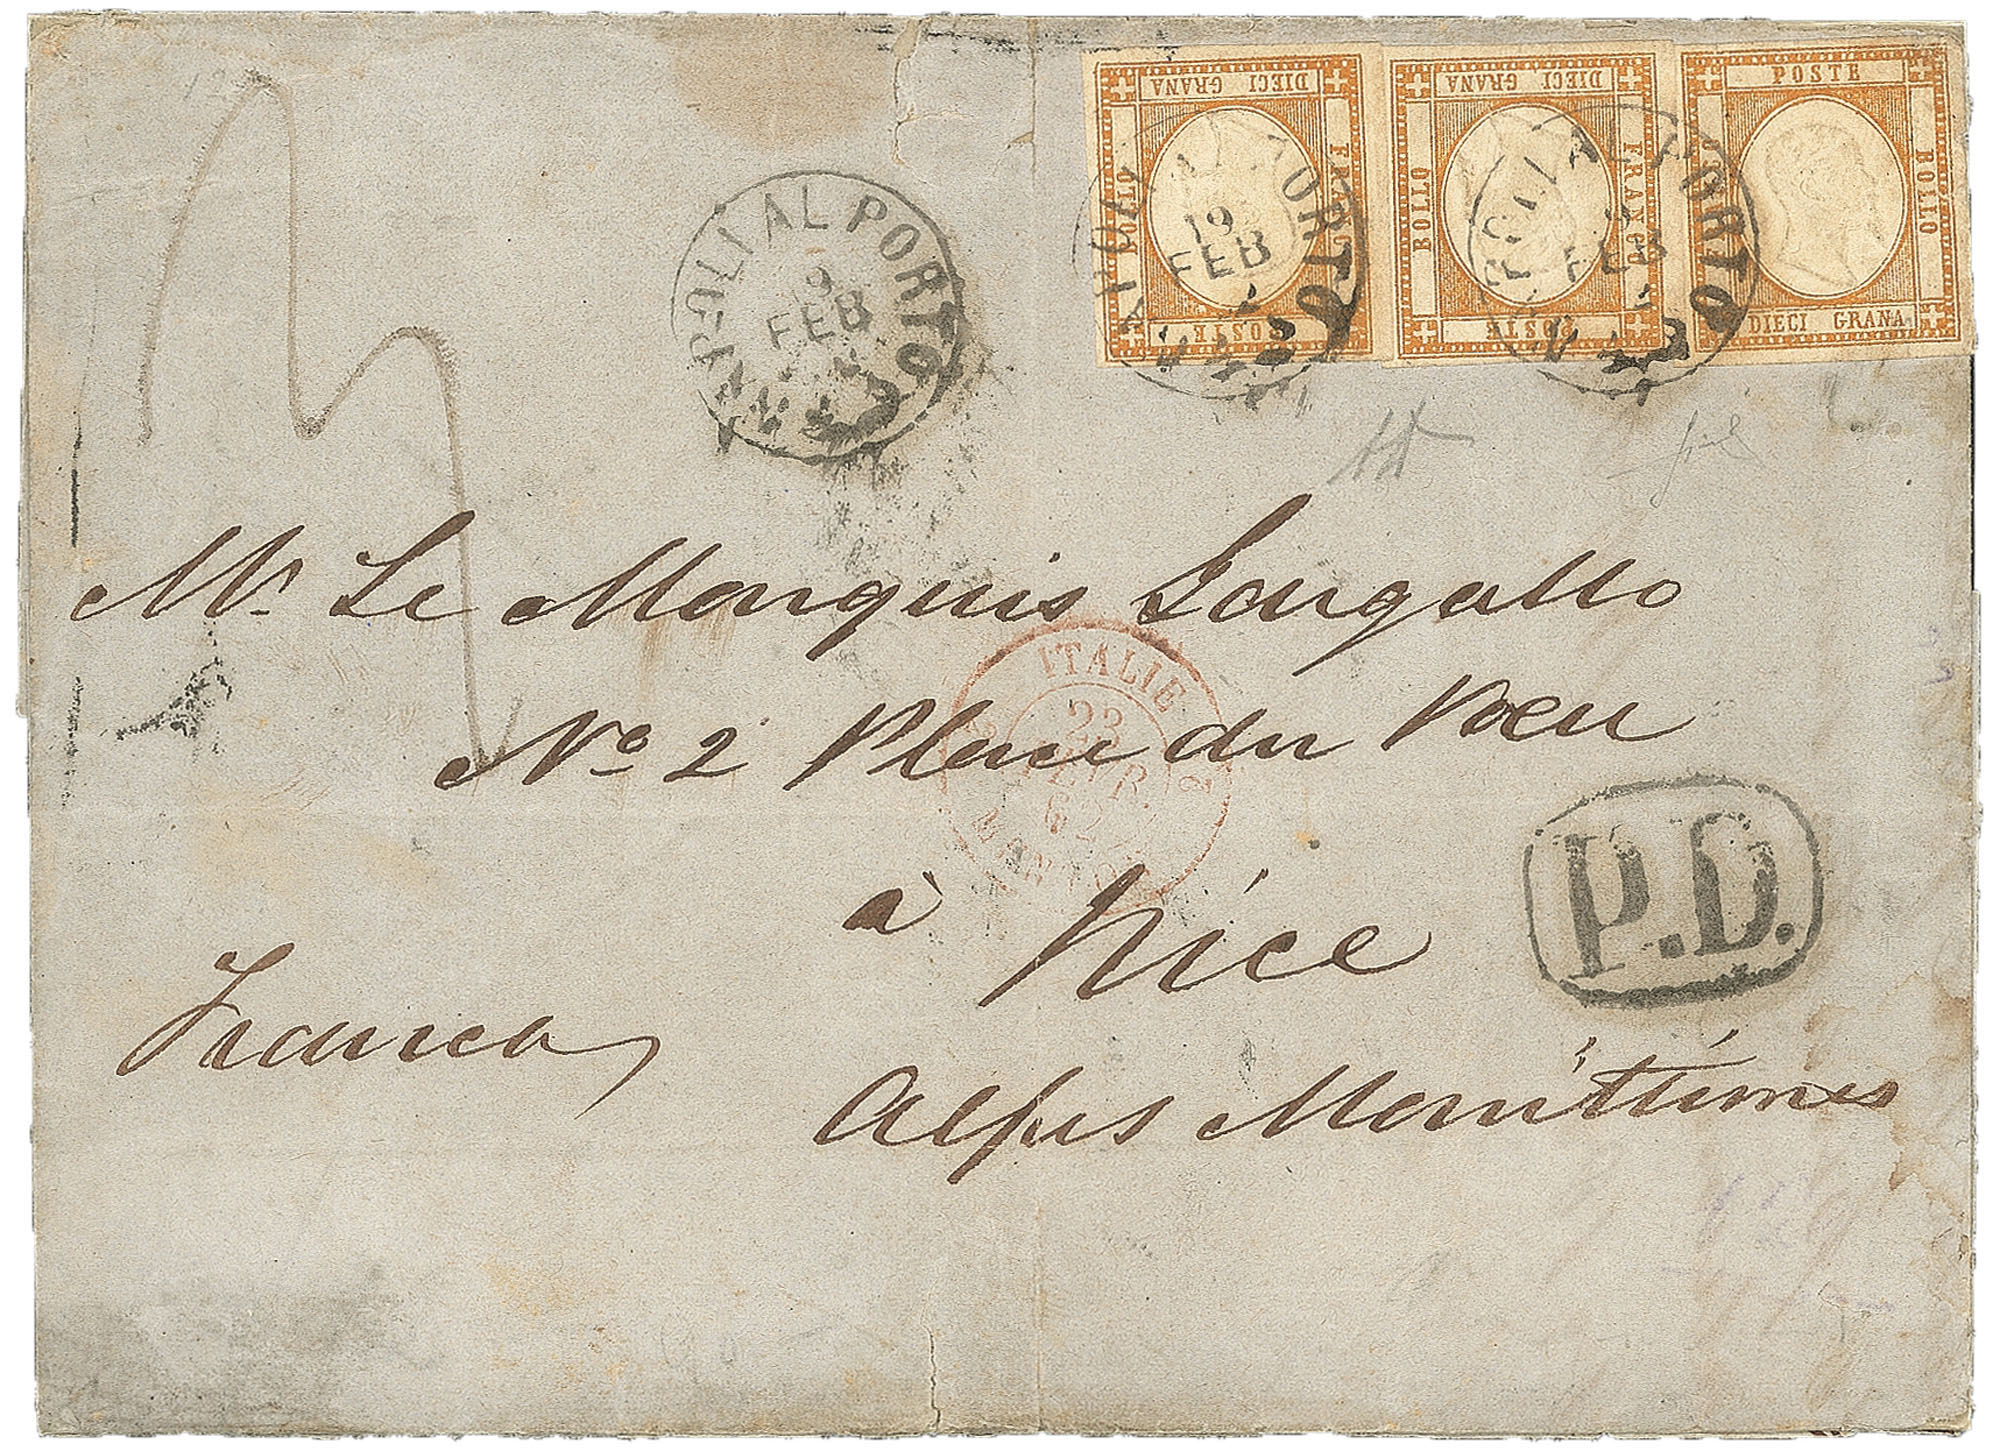 DIECI GRANA
BOLLO
FRANCO
POSTE
DIECI GRANA
BOLLO
FRANCO
POSTE
POSTE
BOLLO
DIECI GRANA
NAPOLI AL PORTO
19
FEB
NAPOLI AL PORTO
19
FEB
NAPOLI AL PORTO
FEB
Mr. Le Marquis Gargallo
No 2 Place du Pceu
à Nice
Alpes Marittimes
Franca
ITALIE
23
FEVR.
62
MENTON
P.D.